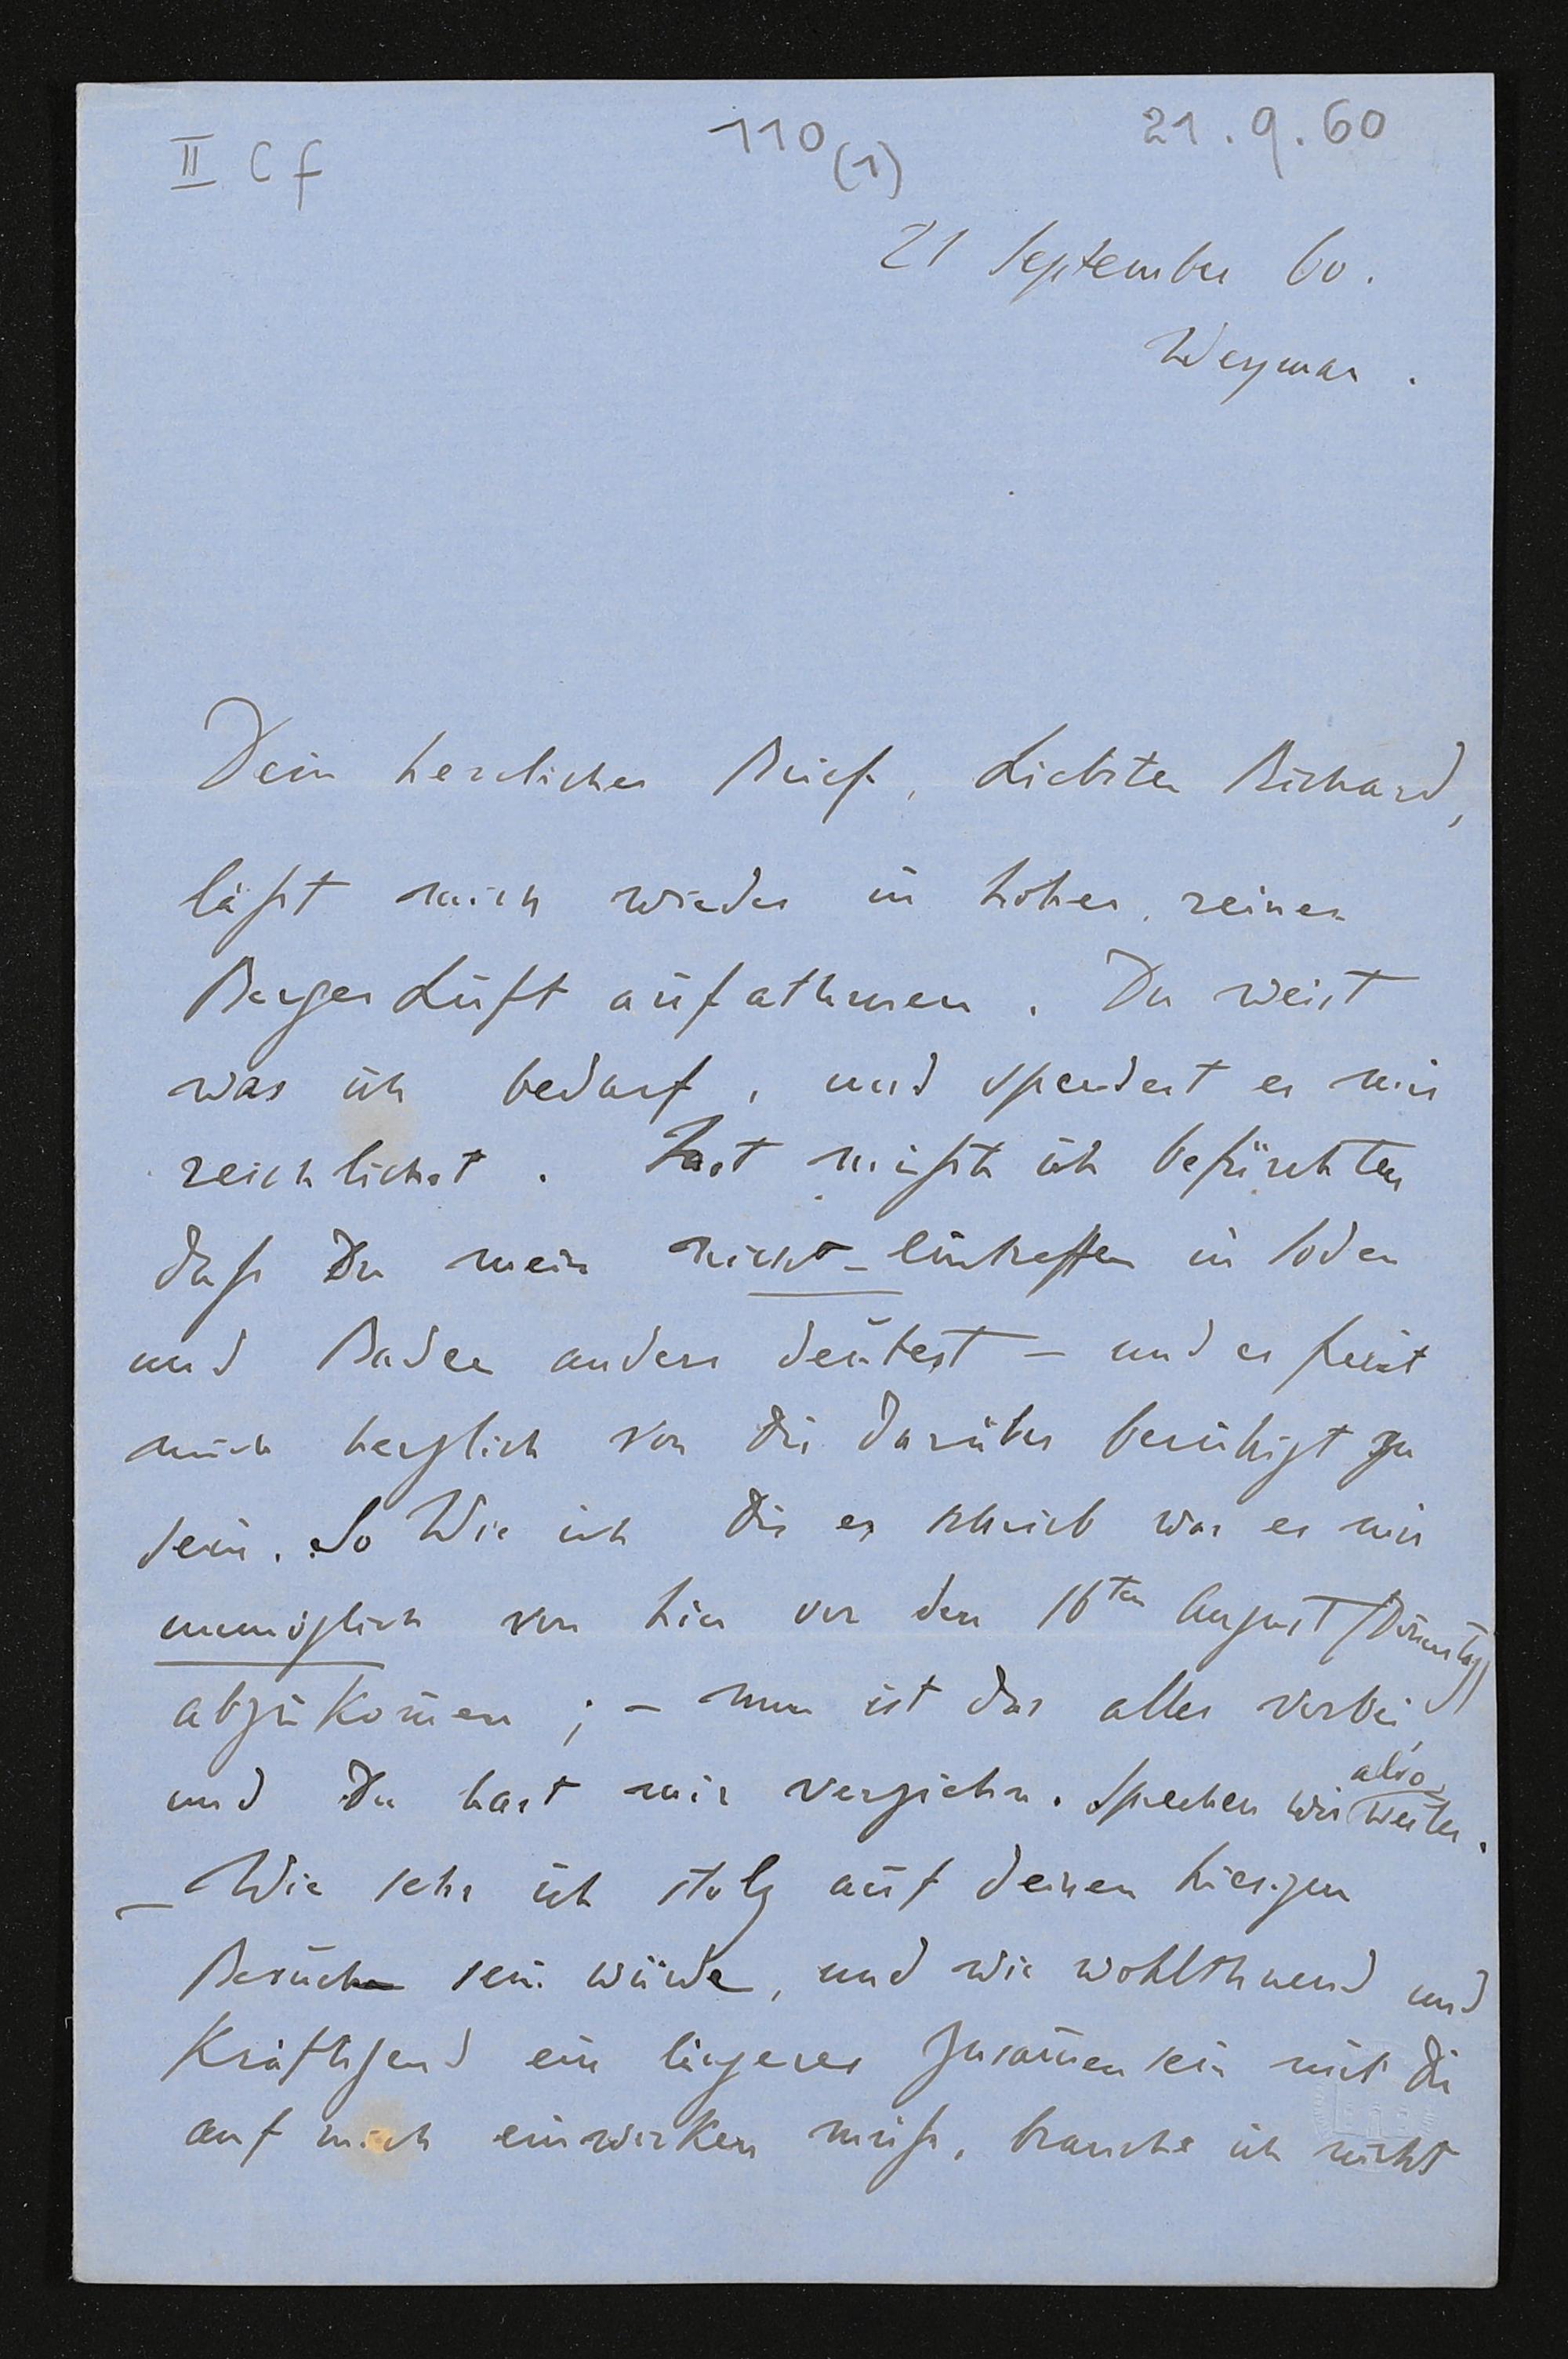 II C f
110 (1)
21.9.60
21 September 60.
Weymar.
Dein herrlicher Brief, Liebster Richard,
läßt mich wieder in hoher, reiner
Berges Luft aufathmen. Du weist
was ich bedarf, und spendest es mir
reichlichst. Fast müßte ich befürchten
daß Du mein nicht-Eintreffen in Soden
und Baden anders deutest – und es freut
mich herzlich von Dir darüber beruhigt zu
sein. So Wie ich Dir es schrieb war es mir
unmöglich von hier vor den 16ten August (Dienstag)
abzukom̄en; – nun ist das alles vorbei,
und Du hast mir verziehn. Sprechen wir also weiter.
– Wie sehr ich stolz auf deinen hiesigen
Besuch sein würde, und wie wohlthuend und
Kräftigend ein längeres Zusam̄ensein mit Dir
auf mich einwirken muß, brauche ich nicht